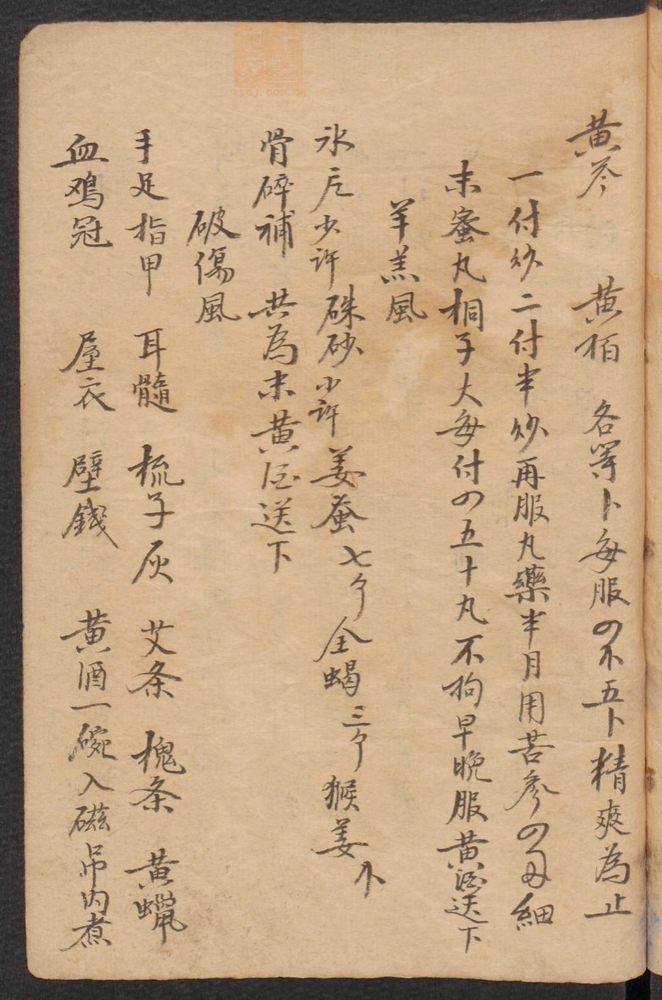 黄芩　黄栢　各等卜每服四不五卜精爽為止
一付炒二付半炒再服丸藥半月用苦參四两細
末蜜丸桐子大每付四五十丸不拘早晚服黄酒送下
羊羔風
氷片少許硃砂少許姜蚕七个全蝎三个猴姜个
骨碎補　共為末黄酒送下
破傷風
手足指甲　耳髓　梳子灰　艾条　槐条　黄蠟
血鸡冠　屋衣　壁錢　黄酒一碗入磁吊内煮